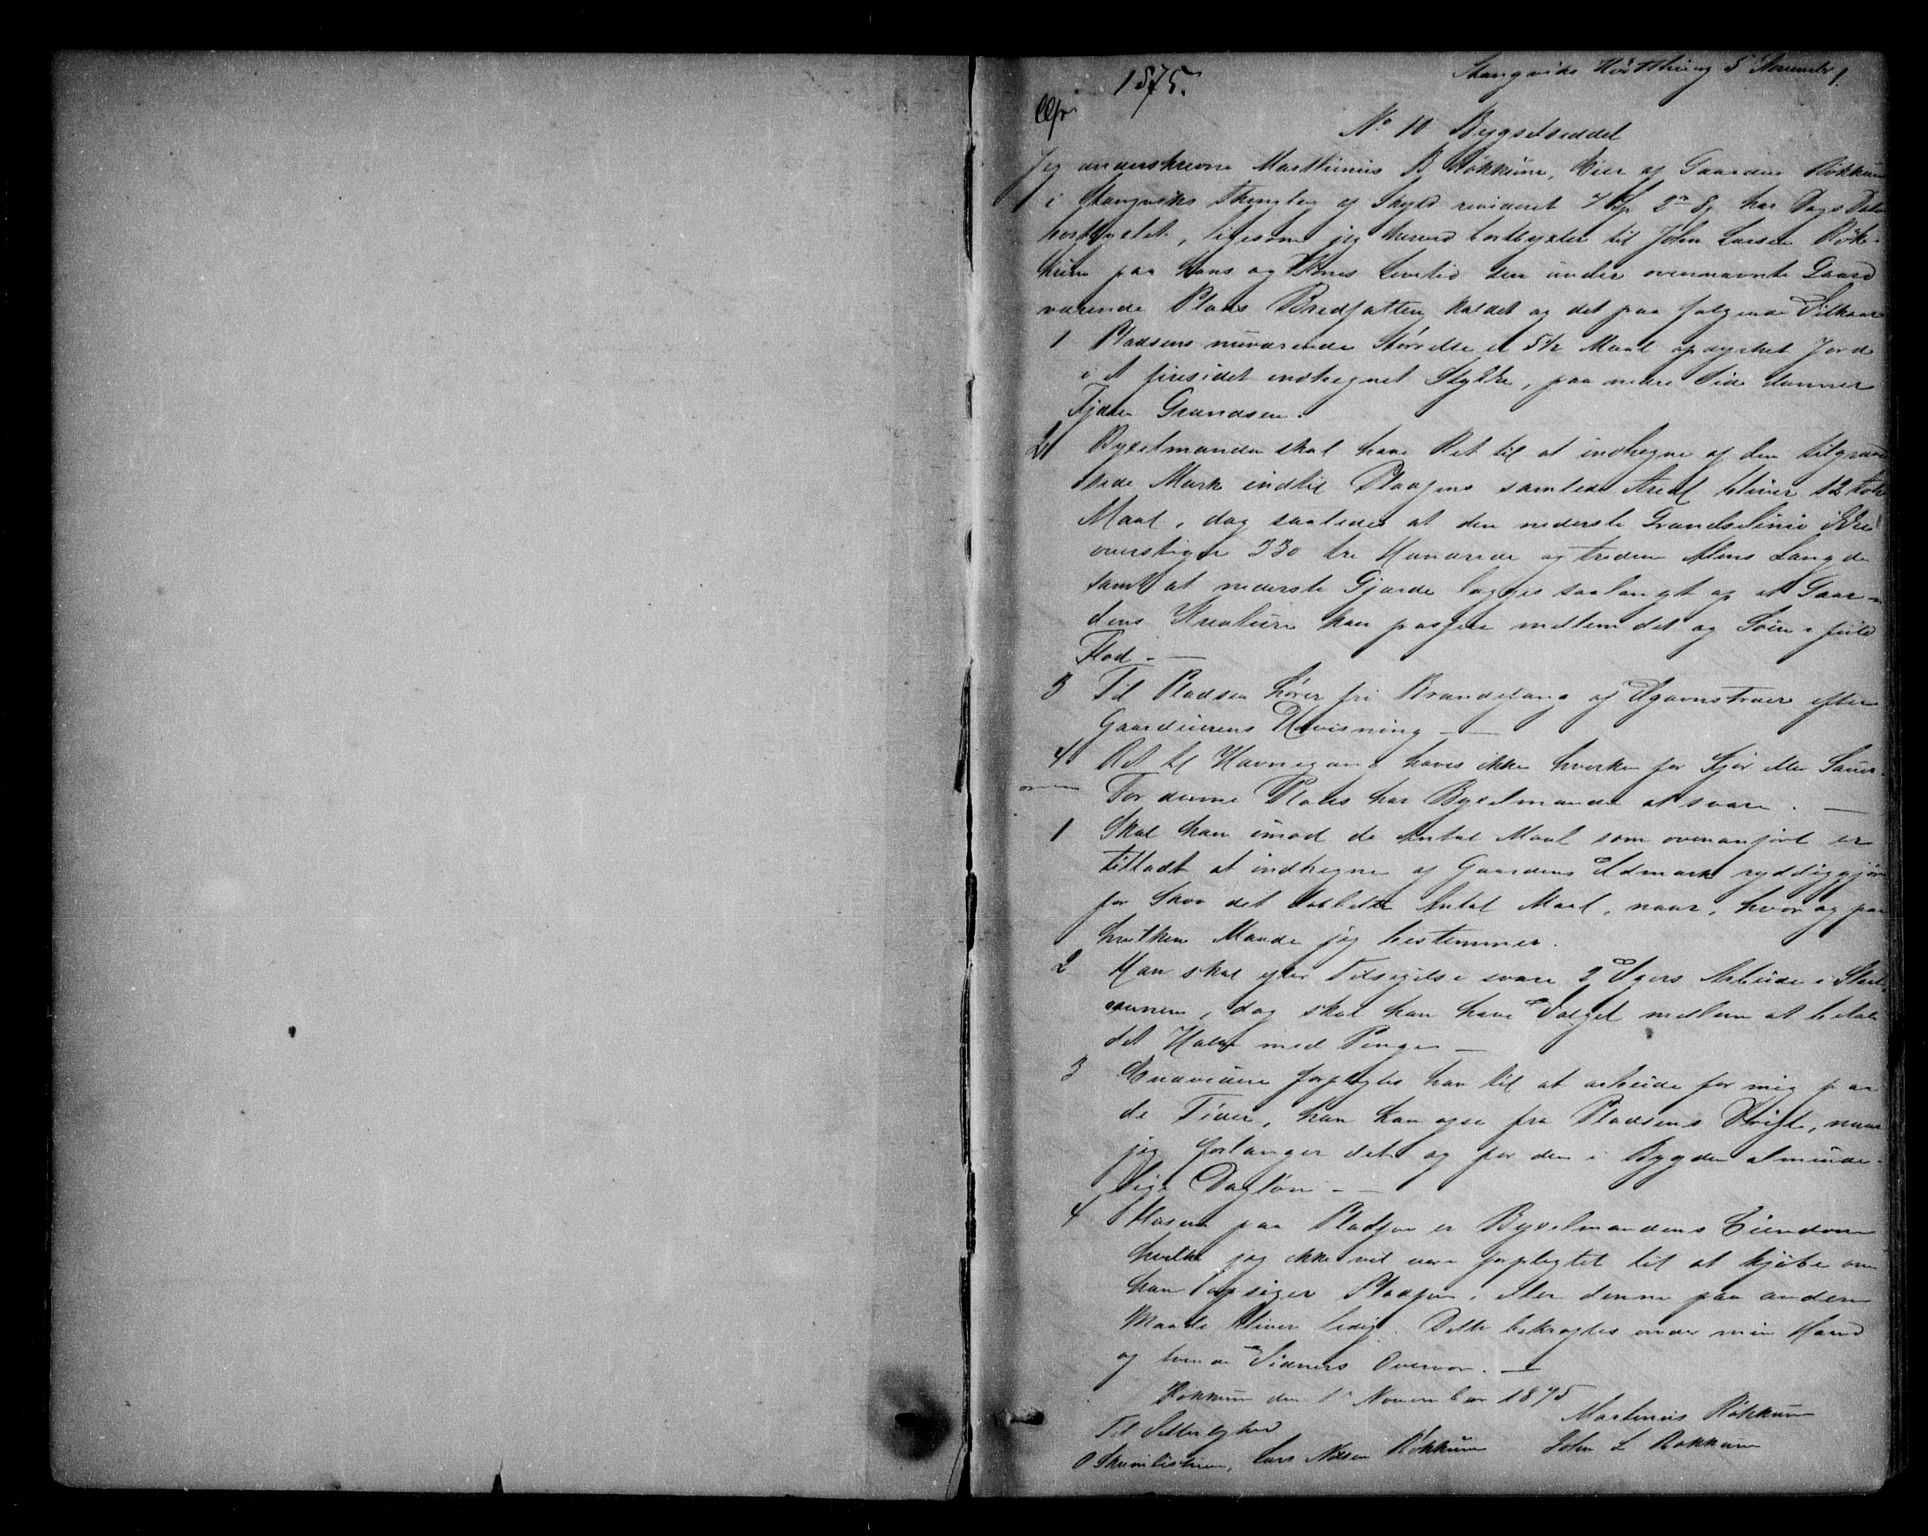 Stangviks Høstthing 5 November
1875.
Afsk.
No 10 Bygselseddel
Jeg underskrevne Marthinus B Røkkum, Eier af Gaarden Røkkum
i Stangviks Thinglag af Skyld revideret har Dags Dato
bortbyxlet, ligesom jeg herved bortbyxler til John Larsen Røk-
kum paa hans og Kones Levetid den under ovennævnte Gaard
værende Plads Bredfatten kaldet og det paa følgende Vilkaar
1 Pladsens nuværende Størrelse er 5½ Maal opdyrket Jord
i et firesidet indhegnet Stykke, paa nedre Side danner
Fjæren Grændsen.
2 Byxelmanden skal have Ret til at indhegne af den tilgrænd
sede Mark indtil Pladsens samlede Areal bliver 12 tolv
Maal, dog saaledes at den nederste Grændselinie ikke
overstiger 330 tre Hundrede og tredive Alens Længde
samt at nederste Gjærde lægges saalangt op at Gaar-
dens Kreature kan passere mellem det og Søen i fuld
Flod. —
3 Til Pladsen hører fri Brændefang af Ugavnstræer efter
Gaardeierens Udvisning —
4 Ret til Havnegang haves ikke hverken for Kjør eller Sauer.
For denne Plads har Byxelmanden at svare. —
1 Skal han imod de Antal Maal som ovenanført er
tilladt at indhegne af Gaardens Udmark ryddiggjøre
for Skov det dobbelte Antal Maal, naar, hvor og paa
hvilken Maade jeg bestemmer.
2 Han skal efter Tilsigelse svare 2 Ugers Arbeide i Slaat
onnen, dog skal han have Valget mellem at betale
det Halve med Penge —
3 Endvidere forpligtes han til at arbeide for mig paa
de Tider, han kan afse fra Pladsens Drift, naar
jeg forlanger det og for den i Bygden alminde-
lige Dagløn. —
4 Husene paa Pladsen er Byxelmandens Eiendom
hvilke jeg ikke vil være forpligtet til at kjøbe om
han opsiger Pladsen, eller denne paa anden
Maade bliver ledig. Dette bekræftes under min Haand
og tvende Vidners Overvær. —
Røkkum den 1 November 1875
Martinus Røkkum
Til Vitterlighed
Lars Nilsen Røkkum John L Røkkum